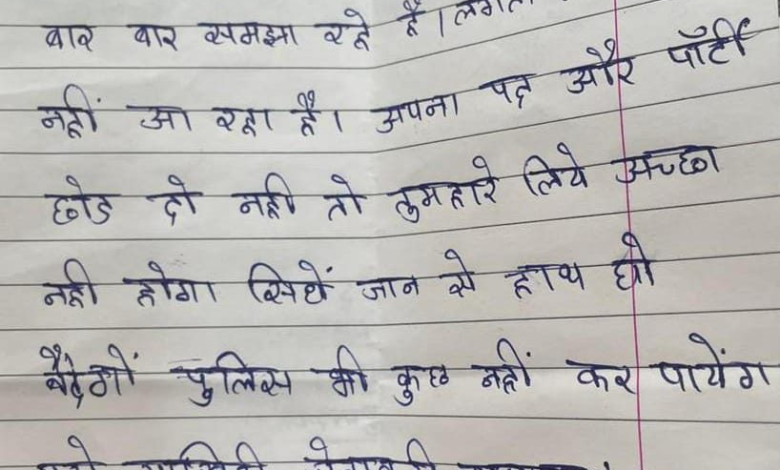 बार बार समझा रहे है। लगता
नहीं आ रहा है। अपना पद और पॉर्टी
छोड दो नही तो तुमहारे लिये अच्छा
नही होगा सिधें जान से हाथ धो
बैठेगों पुलिस भी कुछ नहीं कर पायेंग